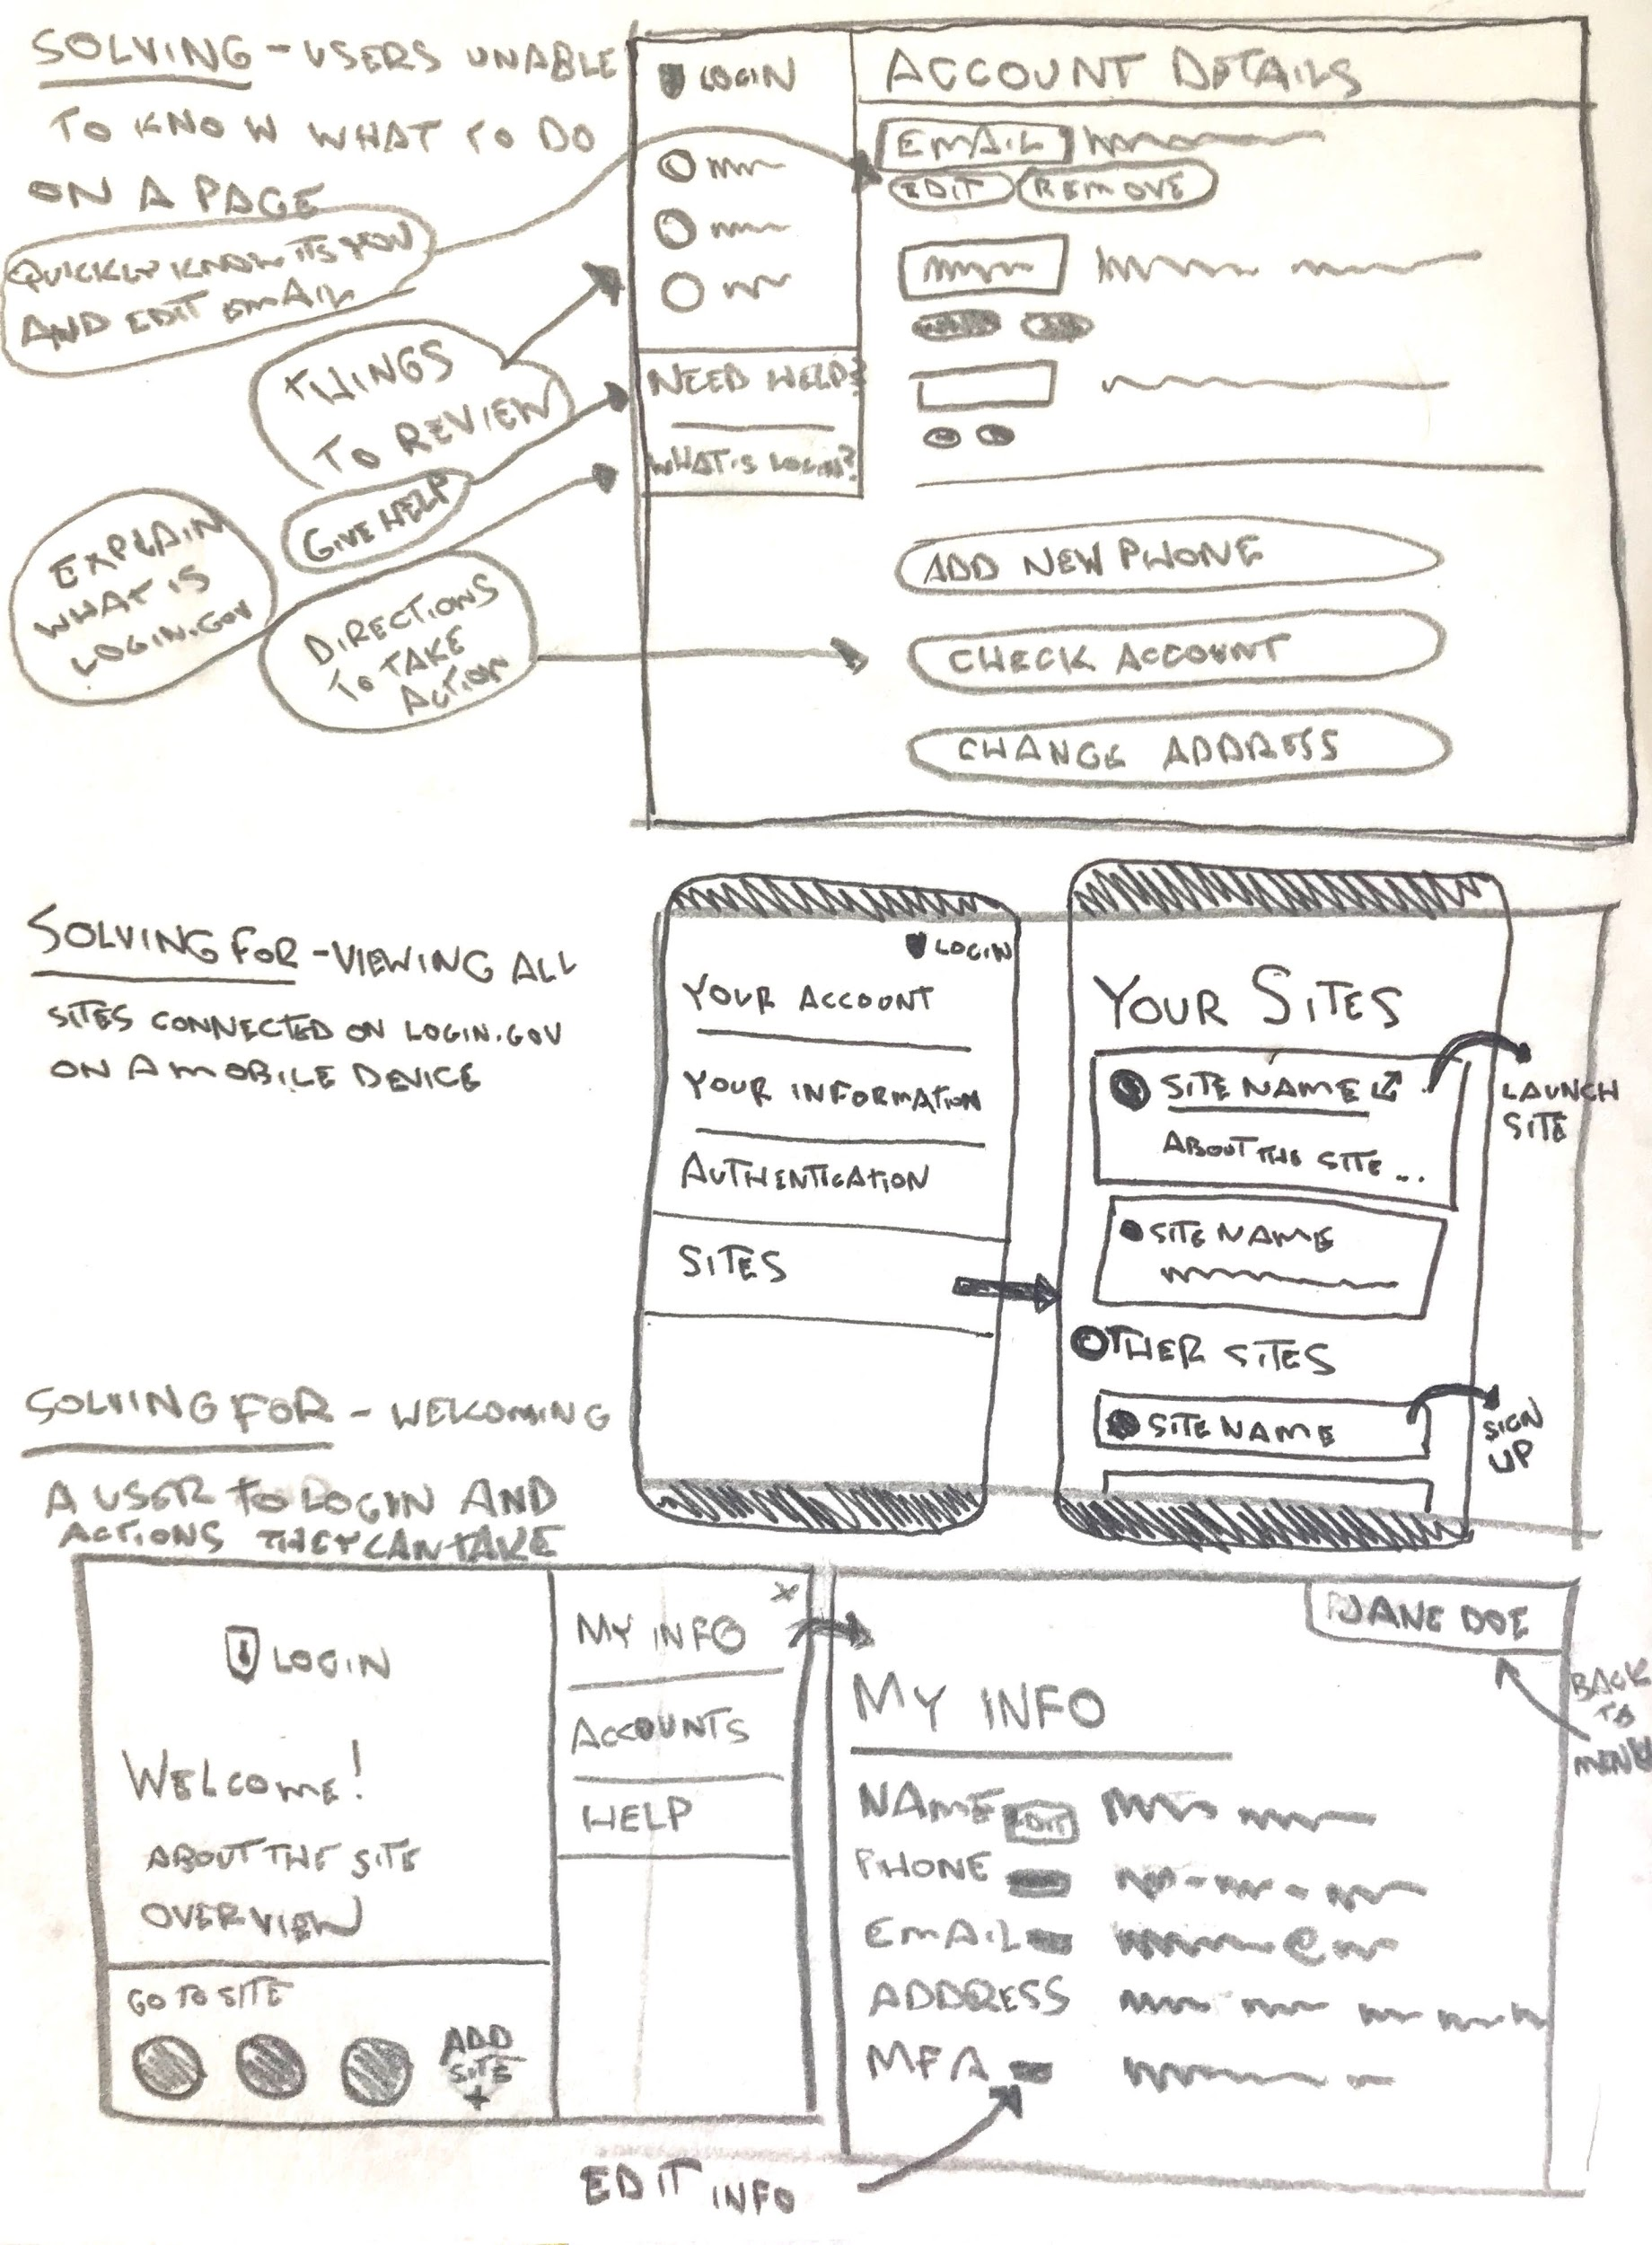 SOLVING - USERS UNABLE
TO KNOW WHAT TO DO
ON A PAGE
QUICKLY KNOW ITS YOU
AND EDIT EMAIL
THINGS
TO REVIEW
GIVE HELP
EXPLAIN
WHAT IS
LOGIN.GOV
DIRECTIONS
TO TAKE
ACTION
LOGIN
NEED HELP?
WHAT'S LOGIN?
ACCOUNT DETAILS
EMAIL
EDIT REMOVE
ADD NEW PHONE
CHECK ACCOUNT
CHANGE ADDRESS
SOLVING FOR - VIEWING ALL
SITES CONNECTED ON LOGIN.GOV
ON A MOBILE DEVICE
LOGIN
YOUR ACCOUNT
YOUR INFORMATION
AUTHENTICATION
SITES
YOUR SITES
SITE NAME
ABOUT THE SITE...
LAUNCH
SITE
SITE NAME
OTHER SITES
SITE NAME
SIGN
UP
SOLVING FOR - WELCOMING
A USER TO LOGIN AND
ACTIONS THEY CAN TAKE
LOGIN
WELCOME!
ABOUT THE SITE
OVERVIEW
GO TO SITE
ADD
SITE
+
X
MY INFO
ACCOUNTS
HELP
JANE DOE
BACK
TO
MENU
MY INFO
NAME EDIT
PHONE
EMAIL @
ADDRESS
MFA
EDIT INFO